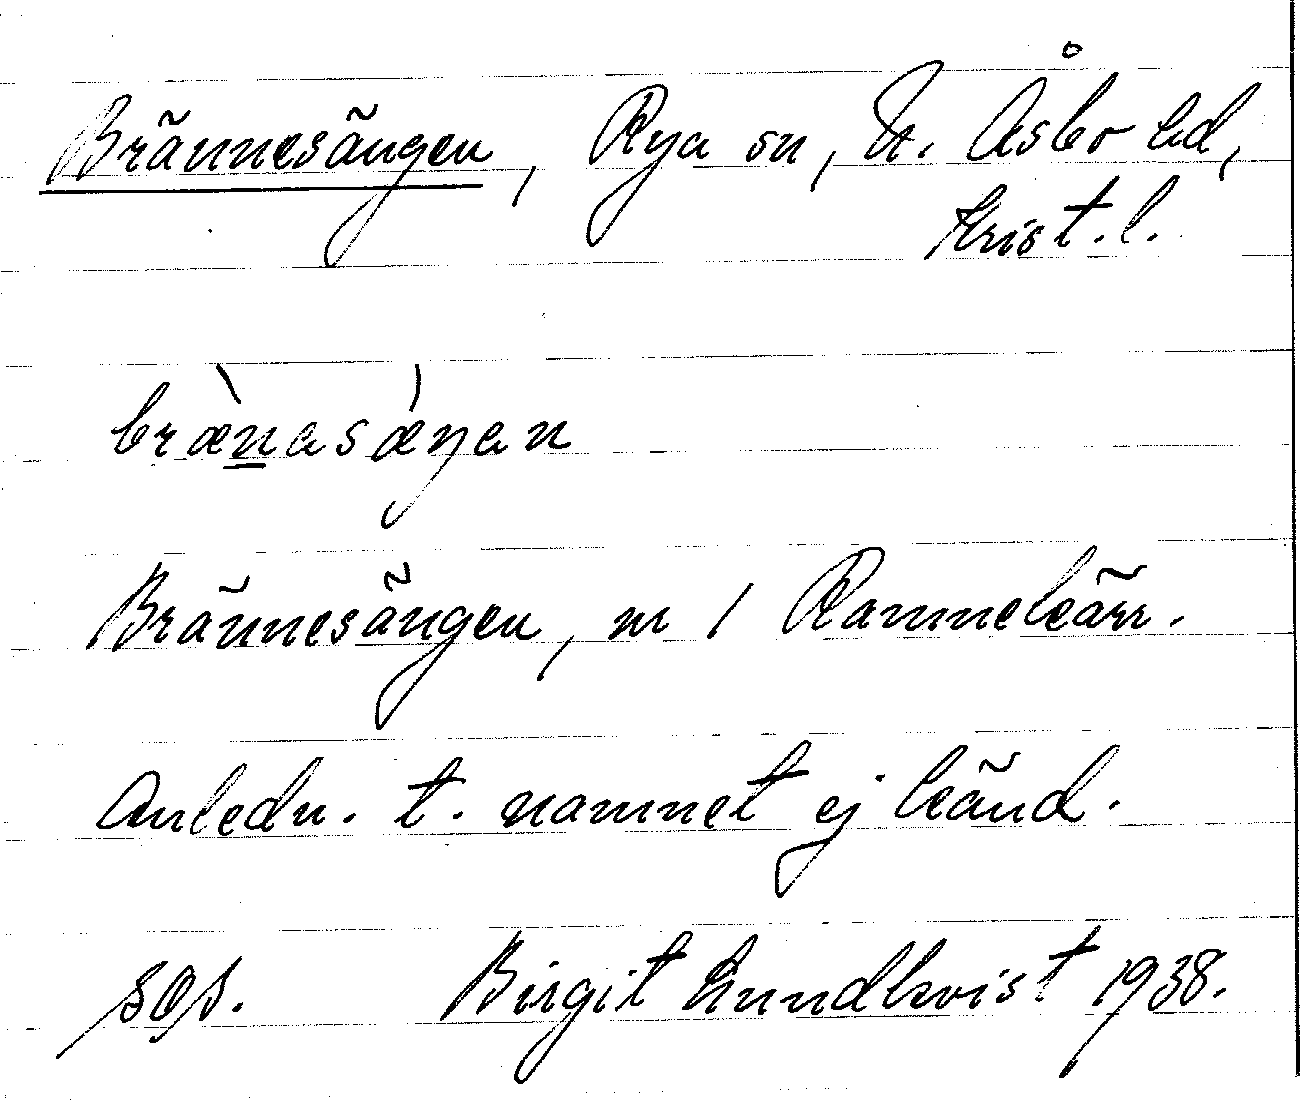 Brännesängen, Rya sn, N. Åsbo hd,
Krist. l.
bræ̀nasǽŋan
Brännesängen, nr 1 Rammekärr.
Anledn. t. namnet ej känd.
Birgit Lundkvist 1938.